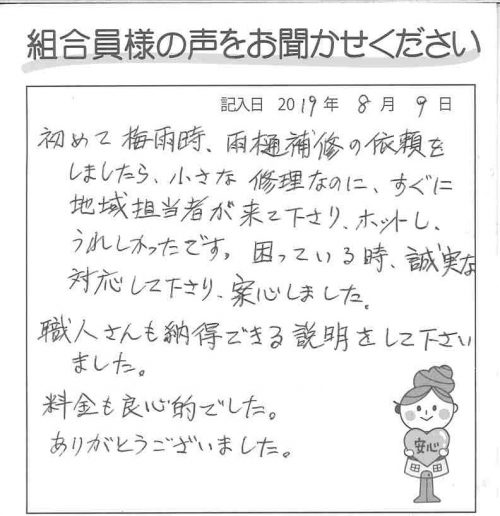 組合員様の声をお聞かせください
記入日 2019年 8月 9日
初めて梅雨時、雨樋補修の依頼を
しましたら、小さな修理なのに、すぐに
地域担当者が来て下さり、ホットし、
うれしかったです。困っている時、誠実な
対応して下さり、安心しました。
職人さんも納得できる説明をして下さい
ました。
料金も良心的でした。
ありがとうございました。
安心